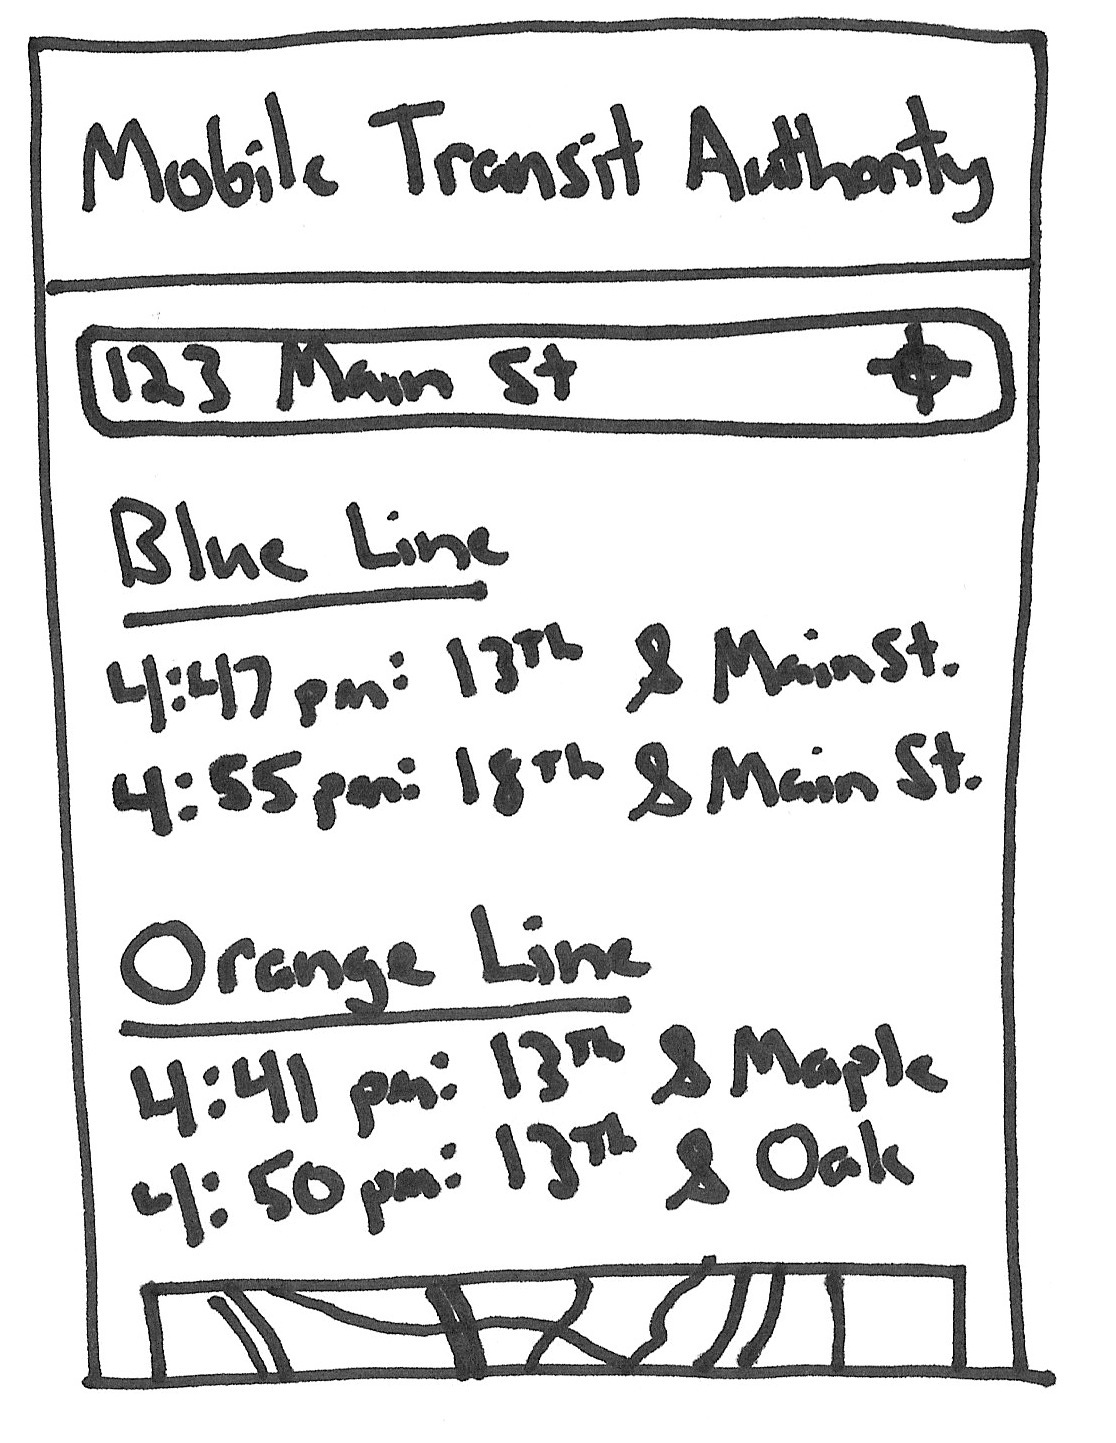 Mobile Transit Authority
123 Main St
Blue Line
4:47 pm: 13TH & Main St.
4:55 pm: 18TH & Main St.
Orange Line
4:41 pm: 13TH & Maple
4:50 pm: 13TH & Oak